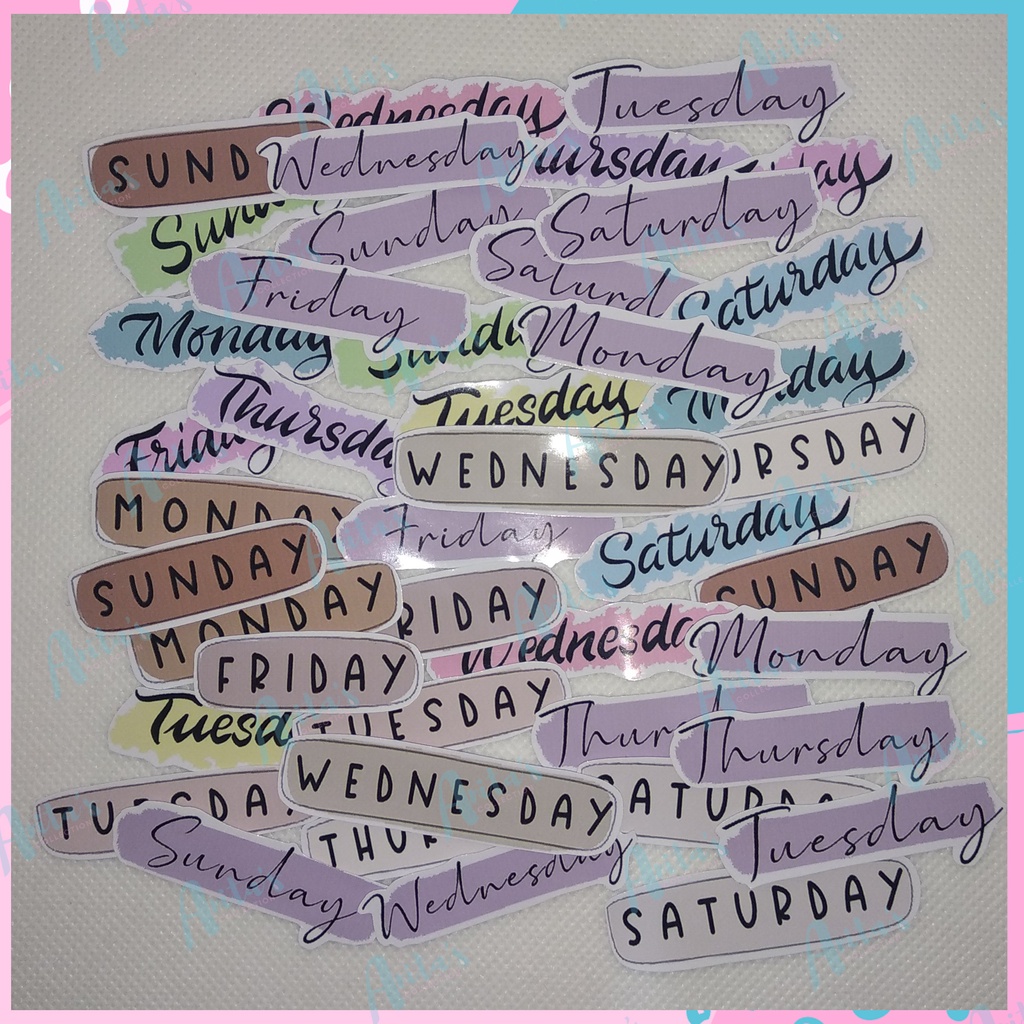 Wednesday
Tuesday
SUND
Wednesday
ursday
ay
Sun
Sunday
Saturday
Friday
Saturd
Saturday
Monday
Sunda
Monday
day
Thursda
Tuesday
Frid
WEDNESDAY
URSDAY
MONDAY
Friday
Saturday
SUNDAY
SUNDAY
MONDAY
RIDAY
Wednesda
Monday
FRIDAY
Tuesd
TUESDAY
Thur
Thursday
TUESDA
WEDNESDAY
ATURDA
Tuesday
Sunday
THU
Wednesday
SATURDAY